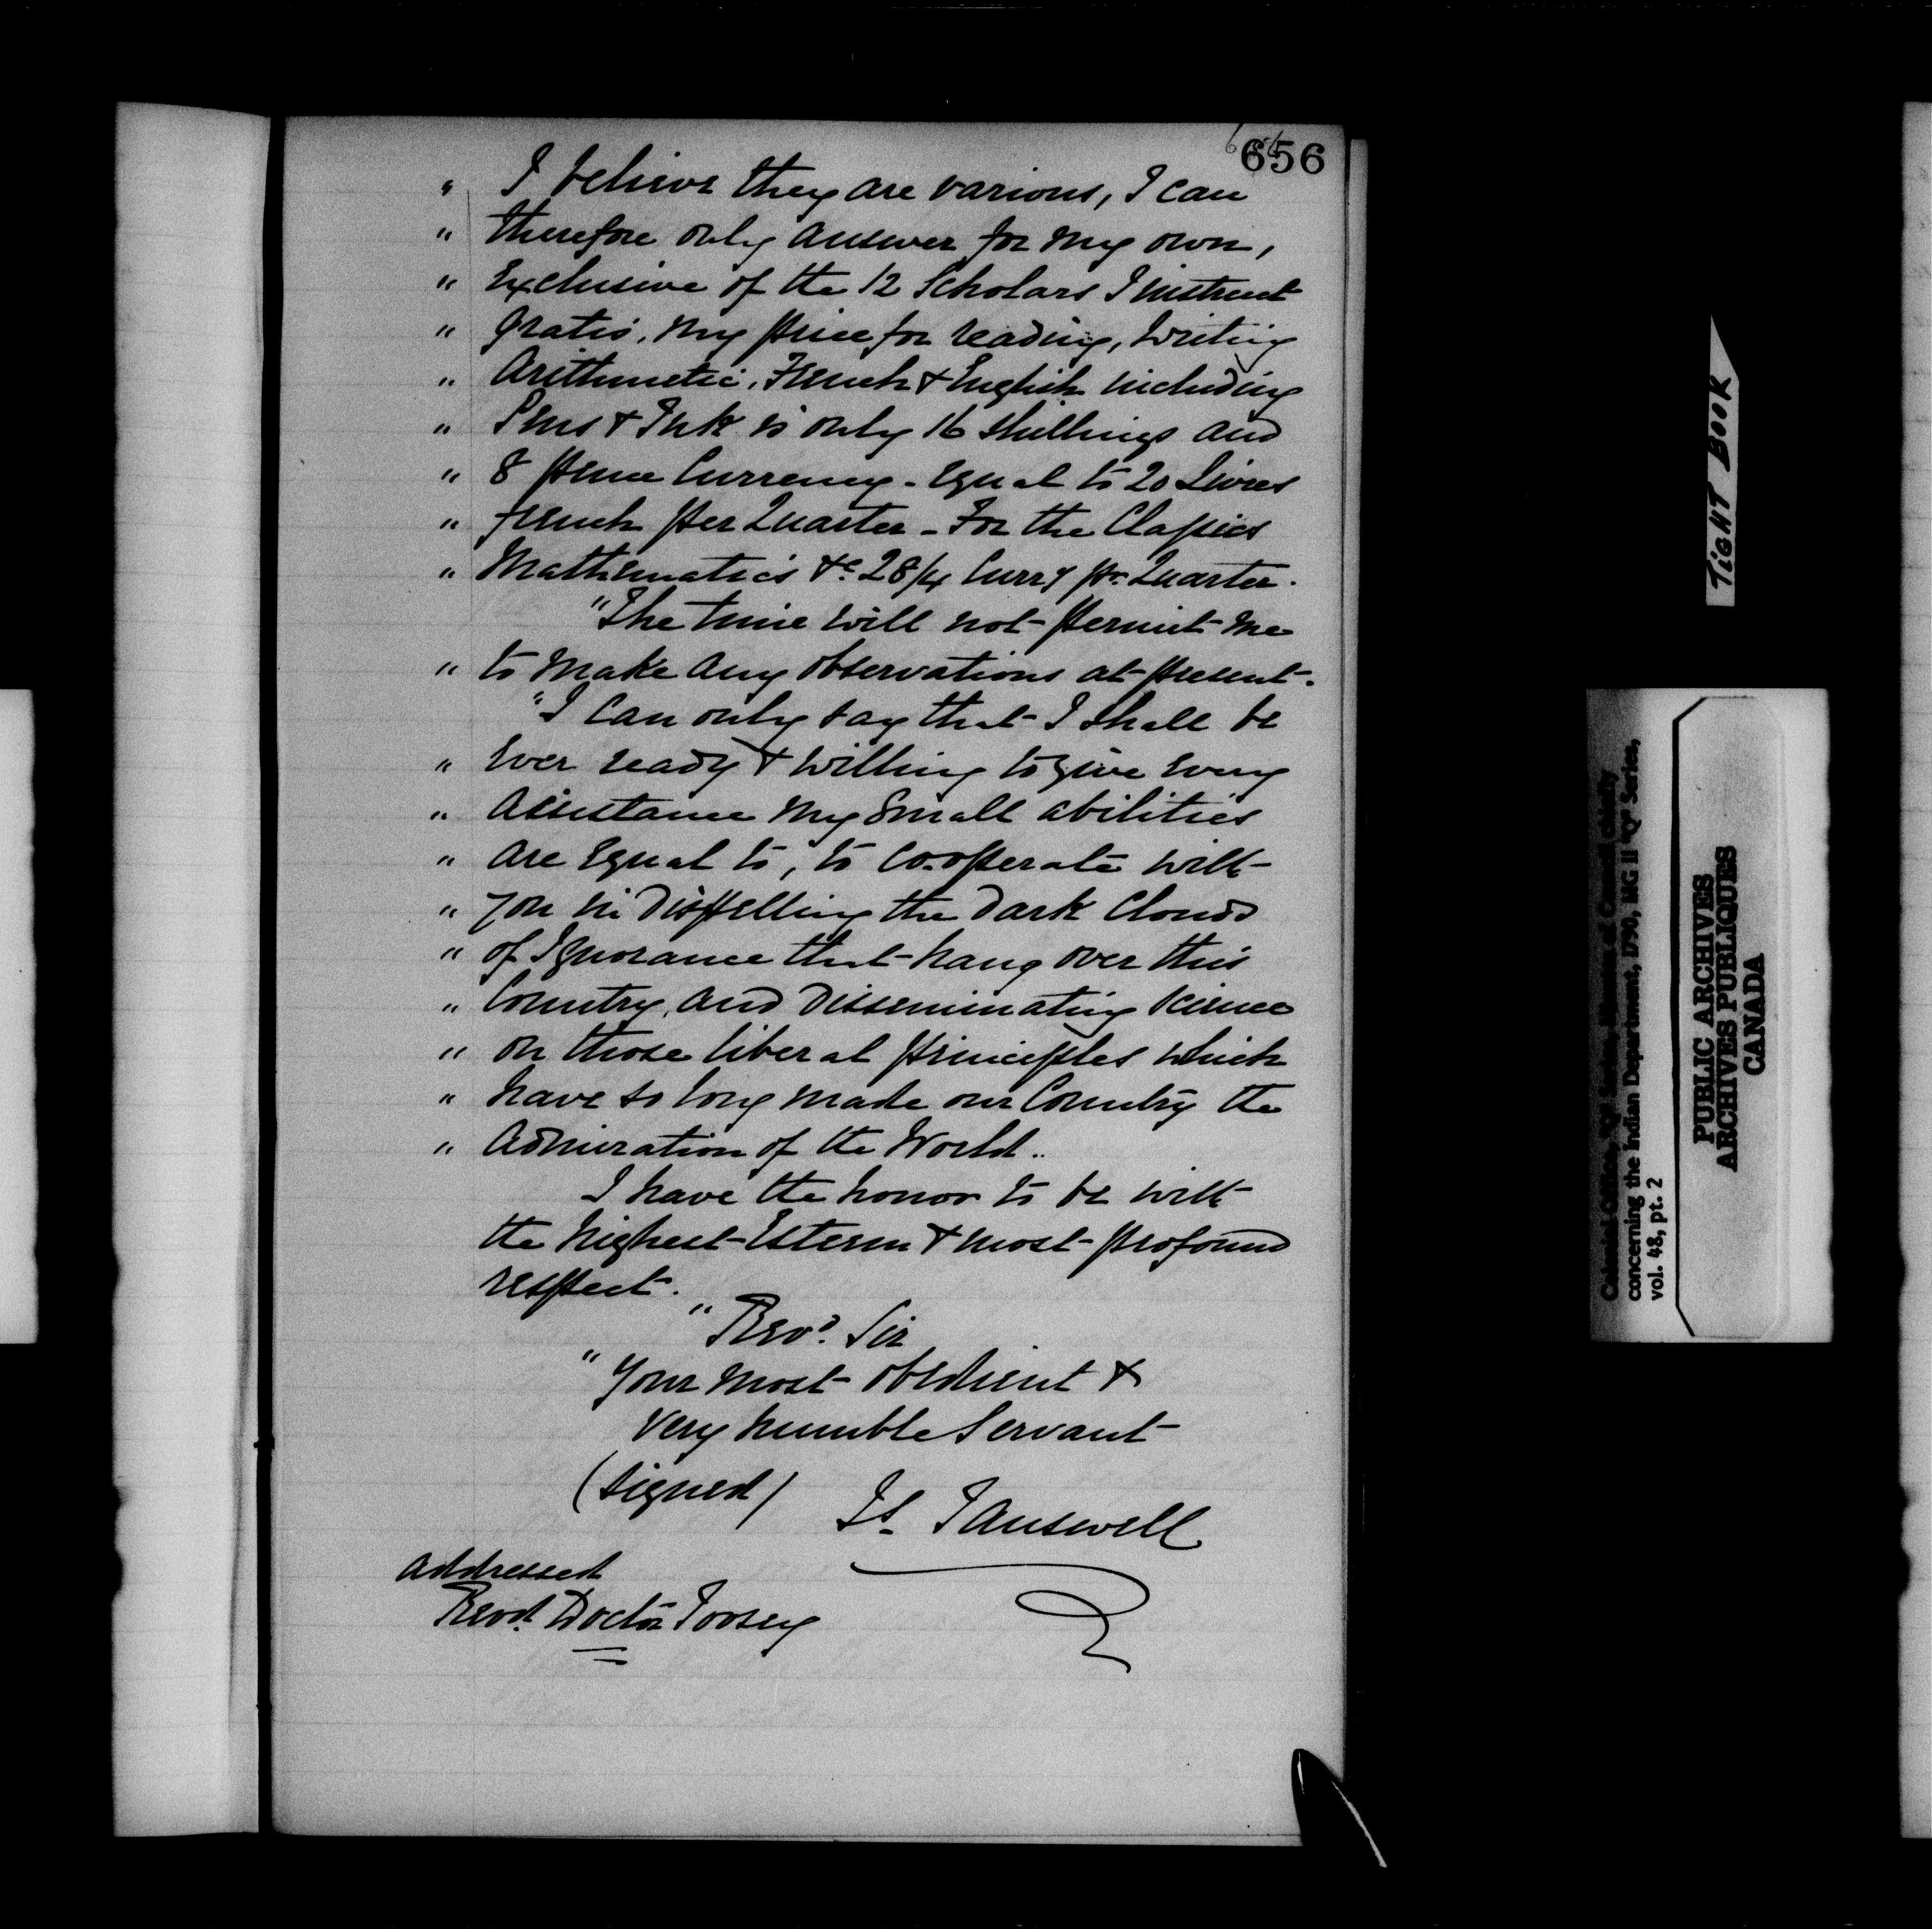 656
" I believe they are various, I can
" therefore only answer for my own,
" Exclusive of the 12 Scholars I instruct
" gratis, my price for reading, writing
" Arithmetic, French & English including
" Pens & Ink is only 16 shillings and
" 8 pence Currency - Equal to 20 Livres
" french per Quarter - For the Classics
" Mathematics &c 28/4 Curry pr. Quarter.
"The time will not permit me
" to make any observations at present.
"I can only say that I shall be
" Ever ready & willing to give every
" Assistance my small abilities
" are Equal to, to co-operate with
" you in dispelling the dark Clouds
" of Ignorance that hang over this
" Country, and disseminating science
" on those liberal principles which
" have so long made our Country the
" Admiration of the World..
I have the honor to be with
the highest Esteem & most profound
respect.
" Revd. Sir
" Your most obedient &
very humble Servant
(signed) Js. Tanswell
addressed
Revd. Doctor Toosey
TIGHT BOOK
concerning the Indian Department, 1790, MG 11 "Q" Series,
vol. 48, pt. 2
PUBLIC ARCHIVES
ARCHIVES PUBLIQUES
CANADA